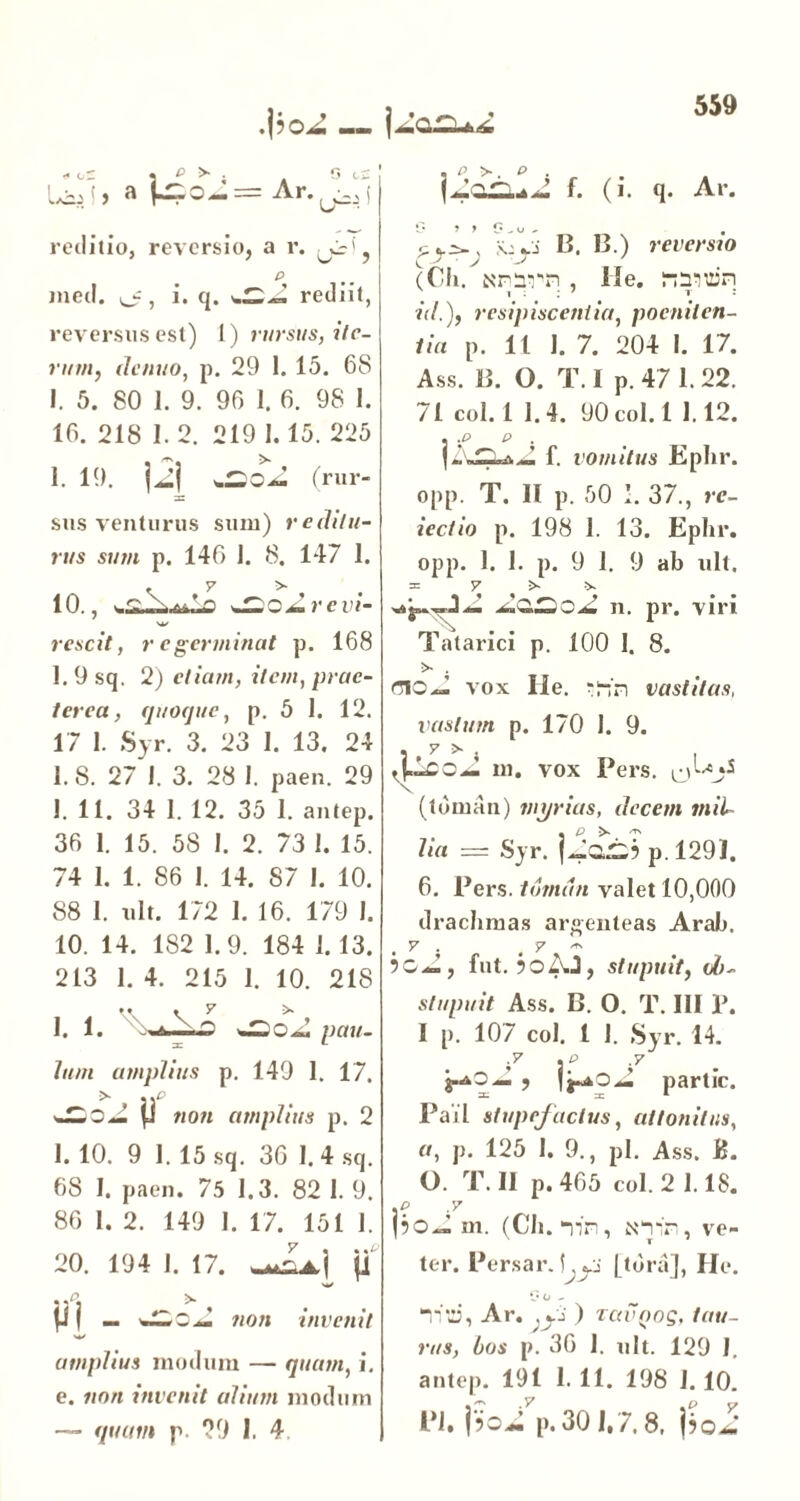 .ܬܘܪܐ — ܬܝܒܘܬܐ 559
أيضا, a ܬܘܒܐ = Ar. أيض
reditio, reversio, a r. أيض,
med. ى, i. q. ܬܒ rediit,
reversus est) 1) rursus, ite-
rum, denuo, p. 29 l. 15. 68
l. 5. 80 l. 9. 96 l. 6. 98 l.
16. 218 l. 2. 219 l. 15. 225
l. 19. ܐܬܐ ܬܘܒ (rur-
sus venturus sum) reditu-
rus sum p. 146 l. 8. 147 l.
10., ܬܘܒ revi-
rescit, regerminat p. 168
l. 9 sq. 2) etiam, item, prae-
terea, quoque, p. 5 l. 12.
17 l. Syr. 3. 23 l. 13. 24
l. 8. 27 l. 3. 28 l. paen. 29
l. 11. 34 l. 12. 35 l. antep.
36 l. 15. 58 l. 2. 73 l. 15.
74 l. 1. 86 l. 14. 87 l. 10.
88 l. ult. 172 l. 16. 179 l.
10. 14. 182 l. 9. 184 l. 13.
213 l. 4. 215 l. 10. 218
l. 1. ܬܘܒ ܩܠܝܠ pau-
lum amplius p. 149 l. 17.
ܠܐ ܬܘܒ non amplius p. 2
l. 10. 9 l. 15 sq. 36 l. 4 sq.
68 l. paen. 75 l. 3. 82 l. 9.
86 l. 2. 149 l. 17. 151 l.
20. 194 l. 17. ܠܐ ܐܫܟܚ
ܬܘܒ — ܐܠܐ non invenit
amplius modum — quam, i.
e. non invenit alium modum
— quam p. 29 l. 4
ܬܝܒܘܬܐ f. (i. q. Ar.
توبة رجوع B. B.) reversio
(Ch. תיובתא, He. תשובה
id.), resipiscentia, poeniten-
tia p. 11 l. 7. 204 l. 17.
Ass. B. O. T. I p. 47 l. 22.
71 col. 1 l. 4. 90 col. 1 l. 12.
ܬܝܒܬܐ f. vomitus Ephr.
opp. T. II p. 50 l. 37., re-
iectio p. 198 l. 13. Ephr.
opp. l. l. p. 9 l. 9 ab ult.
n. pr. viri
Tatarici p. 100 l. 8.
ܬܘܗ vox He. תהו vastitas,
vastum p. 170 l. 9.
ܬܘܡܢܐ m. vox Pers. تومان
(tômân) myrias, decem mil-
lia = Syr. ܪܒܘܬܐ p. 129 l.
6. Pers. tômân valet 10,000
drachmas argenteas Arab.
ܬܘܪ, fut. ܢܬܘܪ, stupuit, ob-
stupuit Ass. B. O. T. III P.
I p. 107 col. 1 l. Syr. 14.
ܬܘܝܪ, ܬܘܝܪܐ partic.
Païl stupefactus, attonitus,
a, p. 125 l. 9., pl. Ass. B.
O. T. II p. 465 col. 2 l. 18.
ܬܘܪܐ m. (Ch. תור, תורא, ve-
ter. Persar. تورا [tôrâ], He.
שור, Ar. ثور) ταῦρος, tau-
rus, bos p. 36 l. ult. 129 l.
antep. 191 l. 11. 198 l. 10.
Pl. ܬܘܪ̈ܐ p. 30 l. 7. 8. ܬܘܪܐ